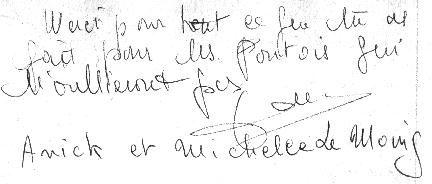 Merci pour tout ce que tu as
fait pour les Pontois qui
n'oublieront pas
Anick et Michel Le Moing